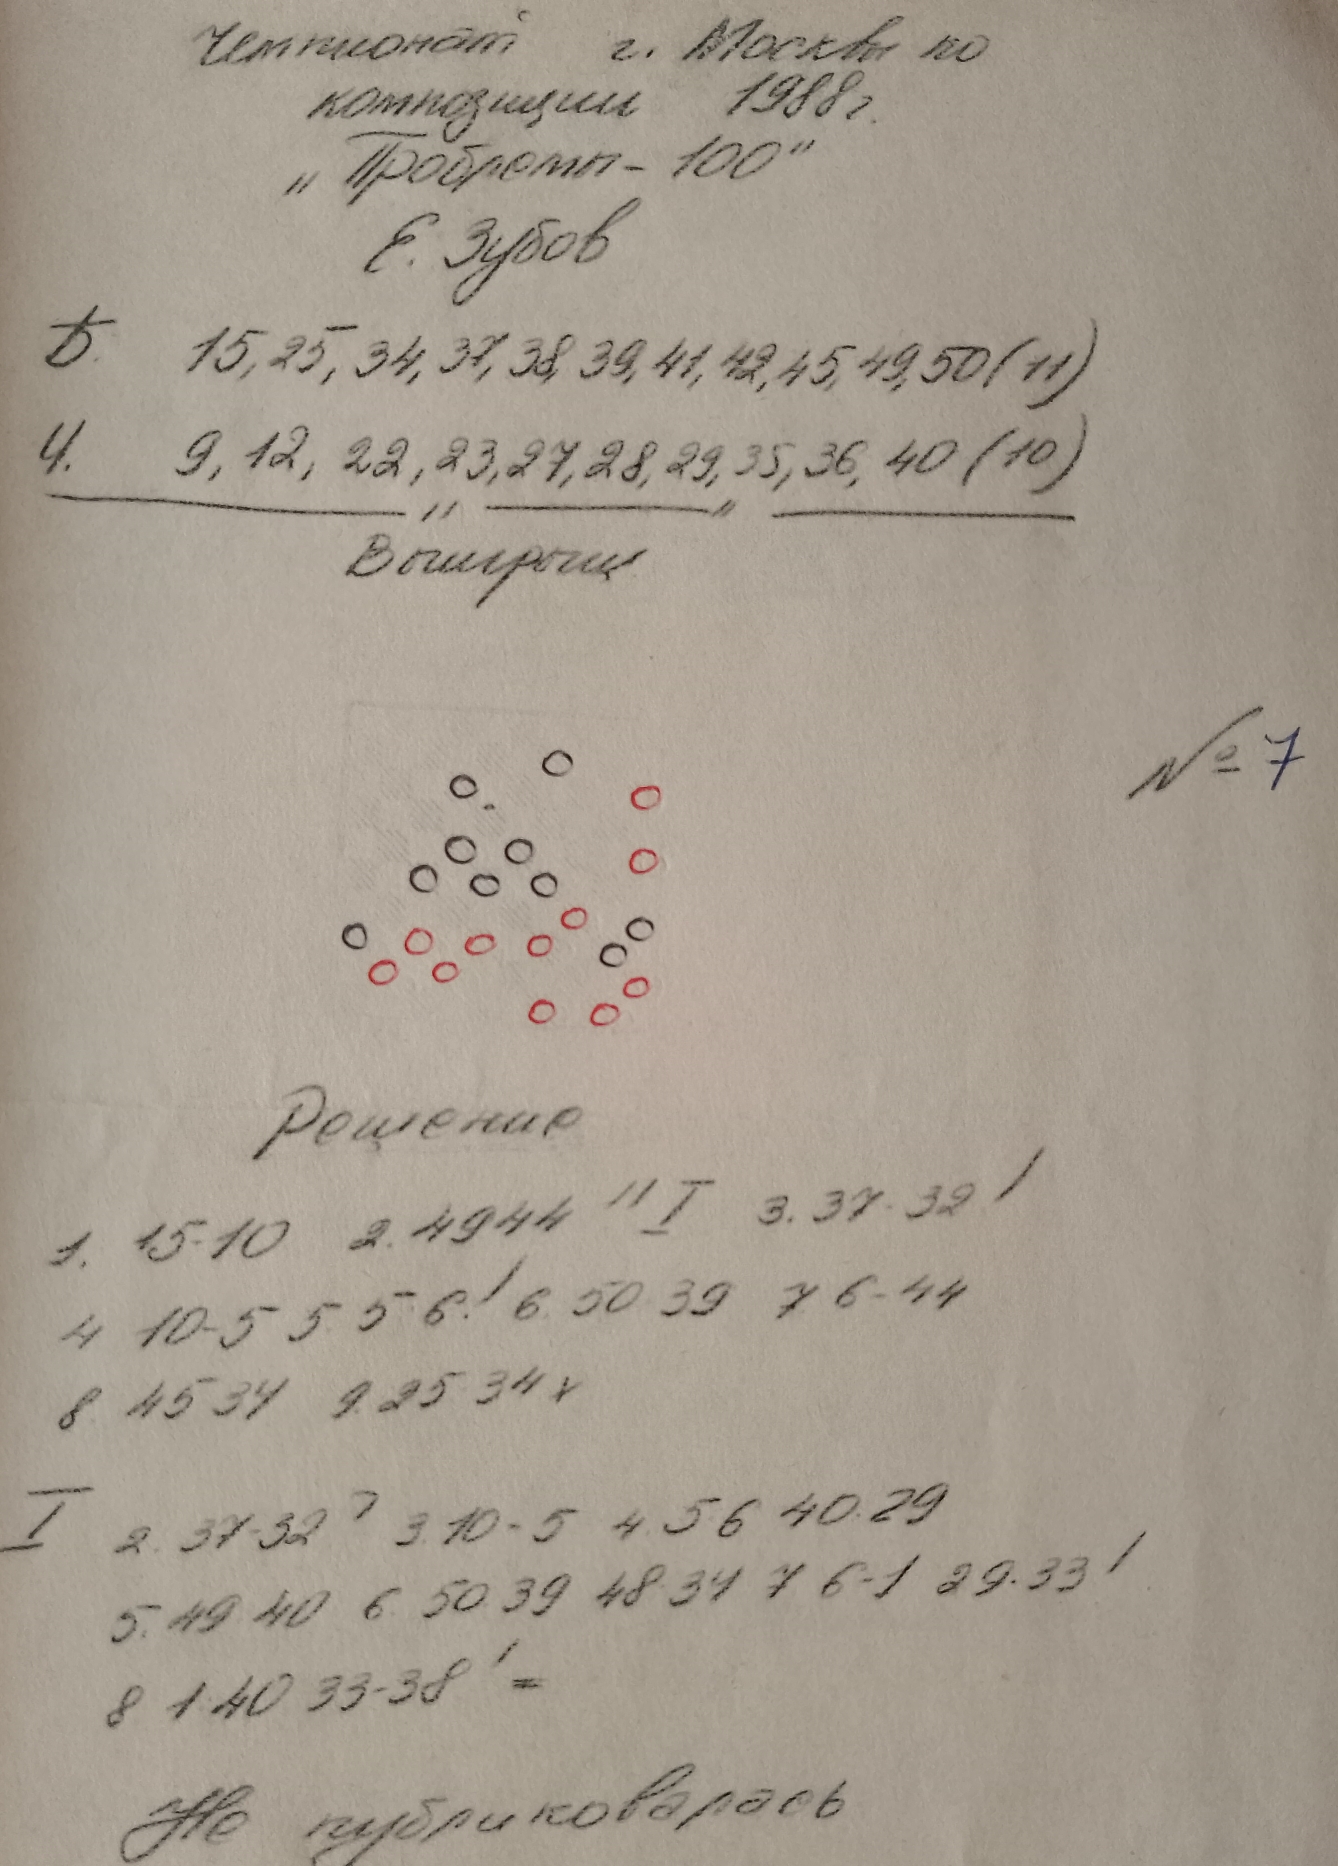 Чемпионат г. Москвы по
композиции 1988г.
„Проблемы-100"
Е. Зубов
Б. 15, 25, 34, 37, 38, 39, 41, 42, 45, 49, 50 (11)
Ч. 9, 12, 22, 23, 27, 28, 29, 35, 36, 40 (10)
Выигрыш
№ 7
Решение
1. 15-10 2. 49 44 " I 3. 37-32!
4 10-5 5. 5-6! 6. 50.39 7. 6-44
8 45 34 9. 25 34 x
I 2. 37-32? 3. 10-5 4. 5 6 40.29
5. 49 40 6. 50.39 48.34 7 6-1 29.33!
8 1.40 33-38! =
Не публиковалась